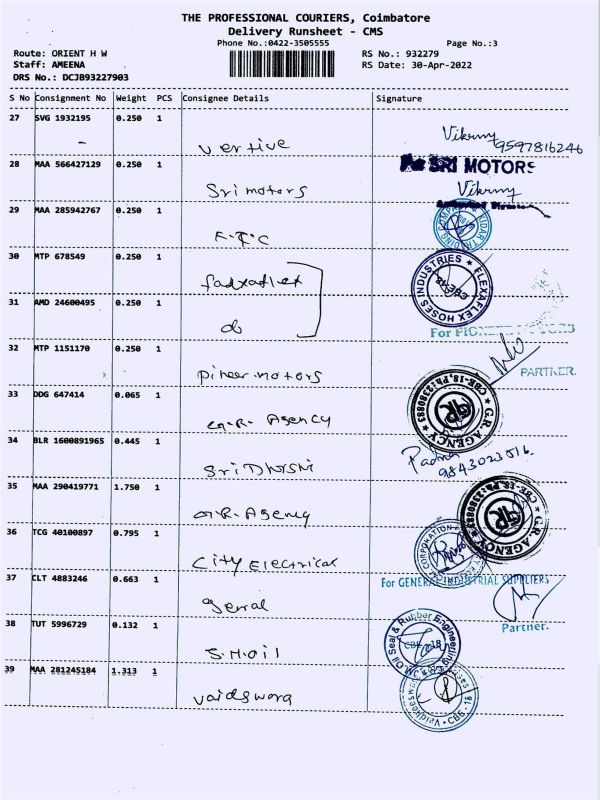 THE PROFESSIONAL COURIERS, Coimbatore
Delivery Runsheet - CMS
Phone No.:0422-3505555
Page No.:3
Route: ORIENT H W
RS No.: 932279
Staff: AMEENA
RS Date: 30-Apr-2022
DRS No.: DCJB93227903
S No Consignment No Weight PCS Consignee Details Signature
27 SVG 1932195 0.250 1
vertive
Vikrmy
9597816246
28 MAA 566427129 0.250 1
SRI MOTORS
Sri motors
Vikrmy
29 MAA 285942767 0.250 1
K.T.C
30 MTP 678549 0.250 1
FLEXAFLEX HOSES INDUSTRIES
CBE-18
31 AMD 24600495 0.250 1
do
For PIONEER
32 MTP 1151170 0.250 1
PARTNER.
pineer motors
33 DDG 647414 0.065 1
G.R. AGENCY CBE-18, Ph:2380883
GR
G.R. Agency
34 BLR 1600891965 0.445 1
Padma
9843023016
Sri Dhorshi
35 MAA 290419771 1.750 1
G.R. AGENCY CBE-18, Ph:2380883
GR
G.R. Agency
36 TCG 40100897 0.795 1
CORPORATION
City Electrical
37 CLT 4883246 0.663 1
For GENERAL INDUSTRIAL SUPPLIERS
Partner.
genral
38 TUT 5996729 0.132 1
JM Oil Seal & Rubber Engineering
CBE-18
S.M.oil
39 MAA 281245184 1.313 1
CBS-18
vaideswara